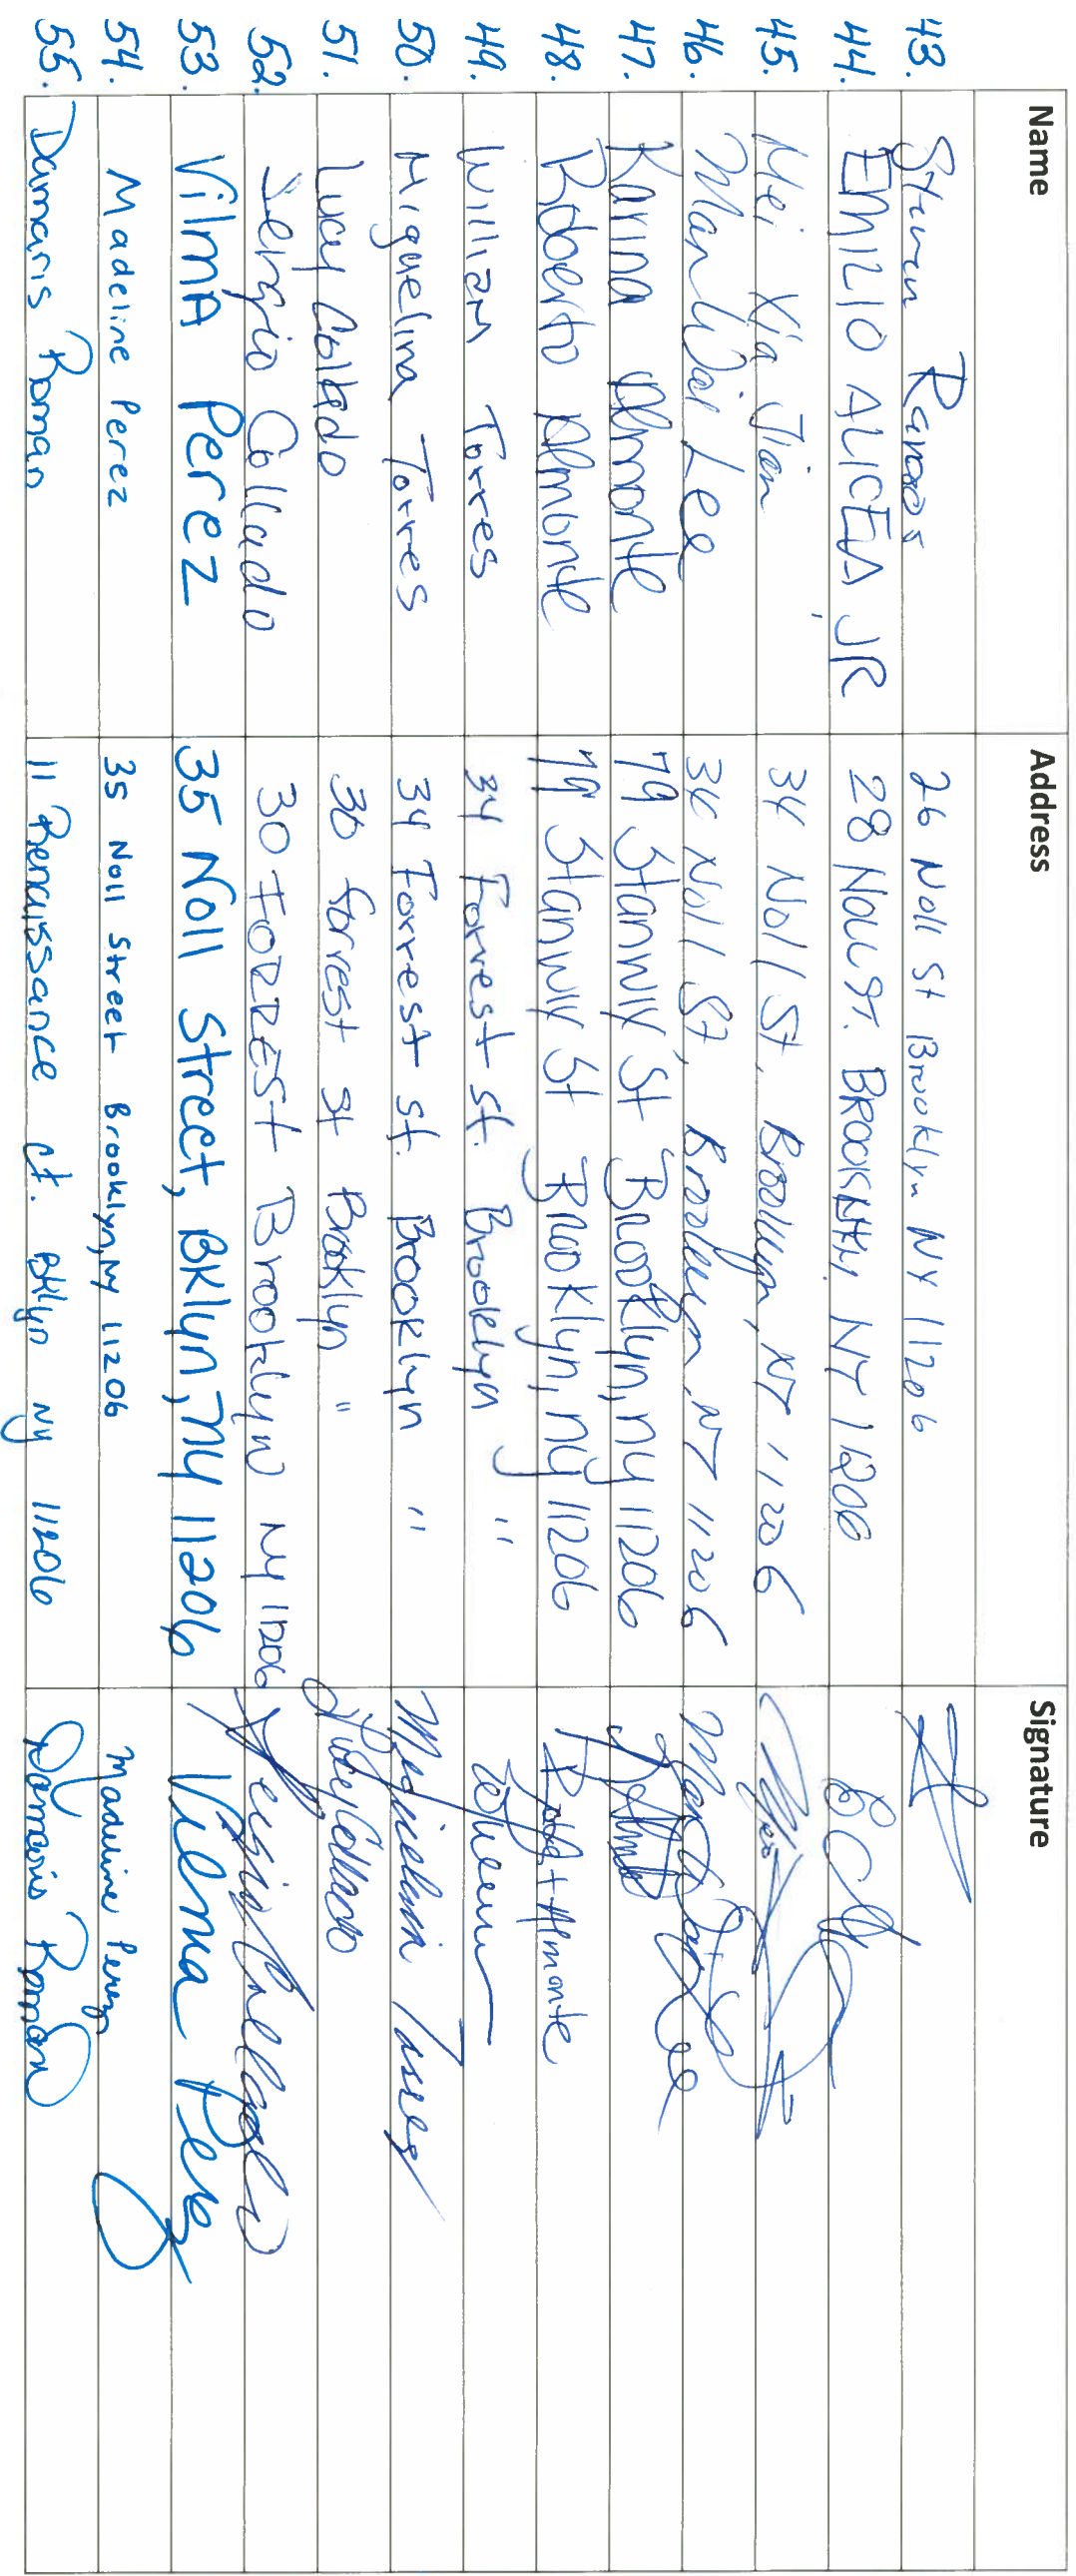 Name Address Signature
43. Steven Ramos 26 Noll St Brooklyn NY 11206
44. EMILIO ALICEA JR 28 NOLL ST. BROOKLYN, NY 11206
45. Mei Xia Jian 34 Noll St, Brooklyn, NY 11206
46. Man Wai Lee 34 Noll St, Brooklyn, NY 11206 Man Wai Lee
47. Karina Almonte 79 Stanwix St Brooklyn, ny 11206
48. Roberto Almonte 79 Stanwix St Brooklyn, ny 11206 Robert Almonte
49. William Torres 34 Forrest st. Brooklyn "
50. Miguelina Torres 34 Forrest st. Brooklyn " Miguelina Torres
51. Lucy Collado 30 forrest st Brooklyn " Lucy Collado
52. Sergio Collado 30 FORREST Brooklyn NY 11206 Sergio Collado
53. Vilma Perez 35 Noll Street, BKlyn, NY 11206 Vilma Perez
54. Madeline Perez 35 Noll Street Brooklyn, NY 11206 Madeline Perez
55. Damaris Roman 11 Renaissance ct. BKlyn NY 11206 Damaris Roman